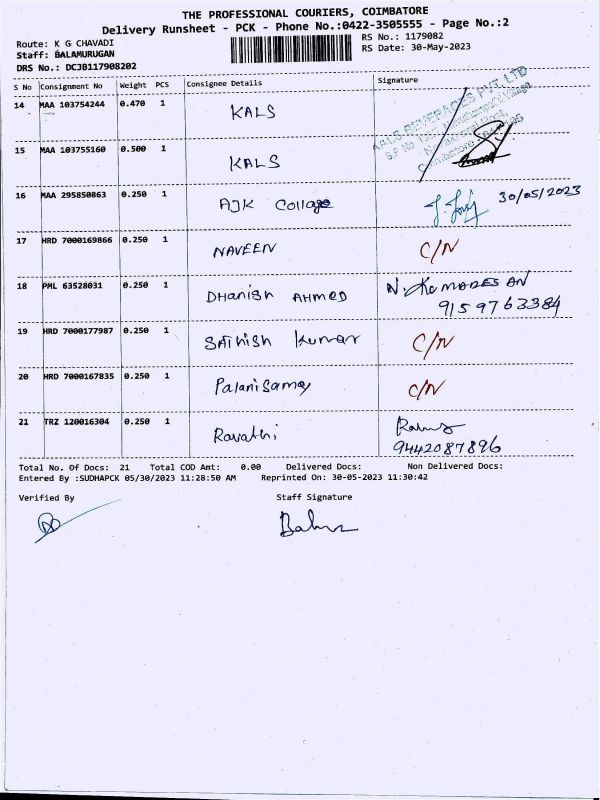 THE PROFESSIONAL COURIERS, COIMBATORE
Delivery Runsheet - PCK - Phone No.:0422-3505555 - Page No.:2
Route: K G CHAVADI
Staff: BALAMURUGAN
DRS No.: DCJB117908202
RS No.: 1179082
RS Date: 30-May-2023
S No Consignment No Weight PCS Consignee Details Signature
14 MAA 103754244 0.470 1 KALS
KALS BEVERAGES PVT. LTD
S.F. No
15 MAA 103755160 0.500 1 KALS
Coimbatore
16 MAA 295850863 0.250 1 AJK Collage 30/05/2023
17 HRD 7000169866 0.250 1 NAVEEN C/N
18 PML 63528031 0.250 1 DHANISH AHMED N. KUMARESAN
9159763384
19 HRD 7000177987 0.250 1 SATHISH Kumar C/N
20 HRD 7000167835 0.250 1 Palanisamy C/N
21 TRZ 120016304 0.250 1 Ravathi
9442087896
Total No. Of Docs: 21 Total COD Amt: 0.00 Delivered Docs: Non Delivered Docs:
Entered By :SUDHAPCK 05/30/2023 11:28:50 AM Reprinted On: 30-05-2023 11:30:42
Verified By Staff Signature